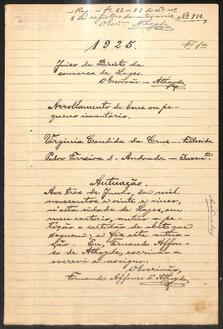 Reg. a fls. 62
Nº 712
O Escrivão Athayde
1925.
Juizo de Direito da
comarca de Lages.
O Escrivão - Athayde
Arrolhamento de bens ou pe-
queno inventário.
Virginia Candida da Cruz - Fallecida
Pedro Ferreira d. Andrade - Invent.
Autuação
Aos tres de Junho, de mil
novecentos e vinte e cinco,
n'esta cidade de Lages, em
meu cartorio, autúo a pe-
tição e certidão de obito que
seguem; e fiz esta autua-
ção. Eu, Fernando Affon-
so de Athayde, escrivão a
escrevi e assigno.
O Escrivão,
Fernando Affonso d'Athayde